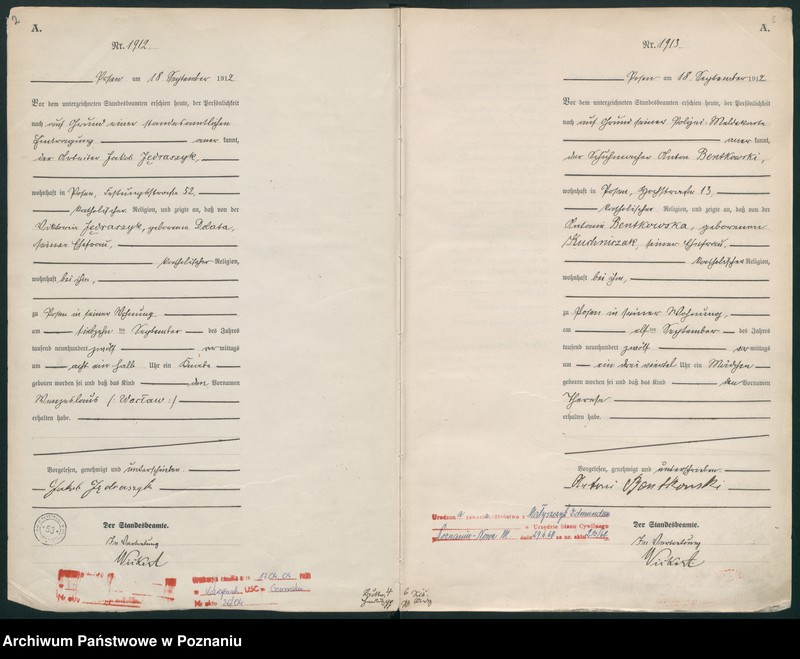 2.
A.
Nr. 1912.
Posen am 18 September 1912
Vor dem unterzeichneten Standesbeamten erschien heute, der Persönlichkeit
nach auf Grund einer standesamtlichen
Eintragung anerkannt,
der Arbeiter Jakob Jędraszyk,
wohnhaft in Posen, 52,
katholischer Religion, und zeigte an, daß von der
Viktoria Jędraszyk, geborenen
seiner Ehefrau,
katholischer Religion,
wohnhaft bei ihm,
zu Posen in seiner Wohnung,
am siebzehnten September des Jahres
tausend neunhundert zwölf vormittags
um acht ein halb Uhr ein Knabe
geboren worden sei und daß das Kind den Vornamen
Wenzeslaus (: Wacław :)
erhalten habe.
Vorgelesen, genehmigt und unterschrieben.
Jakob Jędraszyk
Der Standesbeamte.
In Vertretung
A.
Nr. 1913.
Posen am 18 September 1912
Vor dem unterzeichneten Standesbeamten erschien heute, der Persönlichkeit
nach auf Grund seiner Polizei-Meldekarte
anerkannt,
der Schuhmacher Anton Bentkowski,
wohnhaft in Posen, 13,
katholischer Religion, und zeigte an, daß von der
Antonie Bentkowska, geborenen
Kuchniczak, seiner Ehefrau,
katholischer Religion,
wohnhaft bei ihm,
zu Posen in seiner Wohnung,
am elften September des Jahres
tausend neunhundert zwölf vormittags
um ein drei viertel Uhr ein Mädchen
geboren worden sei und daß das Kind den Vornamen
Therese
erhalten habe.
Vorgelesen, genehmigt und unterschrieben.
Antoni Bentkowski
Der Standesbeamte.
In Vertretung
w Urzędzie Stanu Cywilnego
Poznaniu-Nowe M. dnia
USC w
Nr aktu 26/04
Archiwum Państwowe w Poznaniu